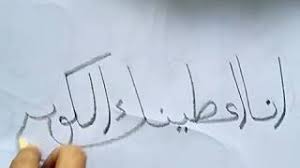 انا اعطينك الكوثر